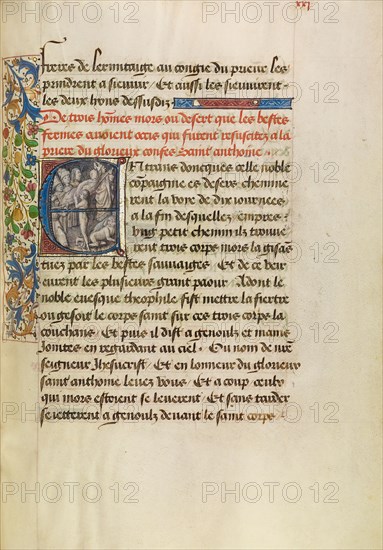 xxi
freres de lermitaige au congie du prieur les
prindrent a sieuvir / Et aussi les sieuvirent
les deux lyons dessusdis
De trois hommes mors ou desert que les bestes
fermes avoient ocis qui furent resuscitez a la
priere du glorieux confes saint anthoine
Entrans doncques celle noble
compaignie es desers chemine
rent la voye de dix iournees
a la fin desquelles empres
ung petit chemin ilz trouve
rent trois corps mors la gisās
tuez par les bestes sauvaiges Et de ce veir
eurent les plusieurs grant paour Adont le
noble evesque theophile fist mettre la fiertre
ou gesoit le corps saint sus ces trois corps la
couchans Et puis il dist a genoulz et mains
iointes en regardant au ciel Ou nom de nr̄e
seigneur Ihesucrist / Et en lonneur du glorieux
saint anthoine levez vous / Et a coup ceulx
qui mors estoient se leverent / Et sans tarder
se ietterent a genoulz devant le saint corps
PHOTO 12
PHOTO 12
PHOTO 12
PHOTO 12